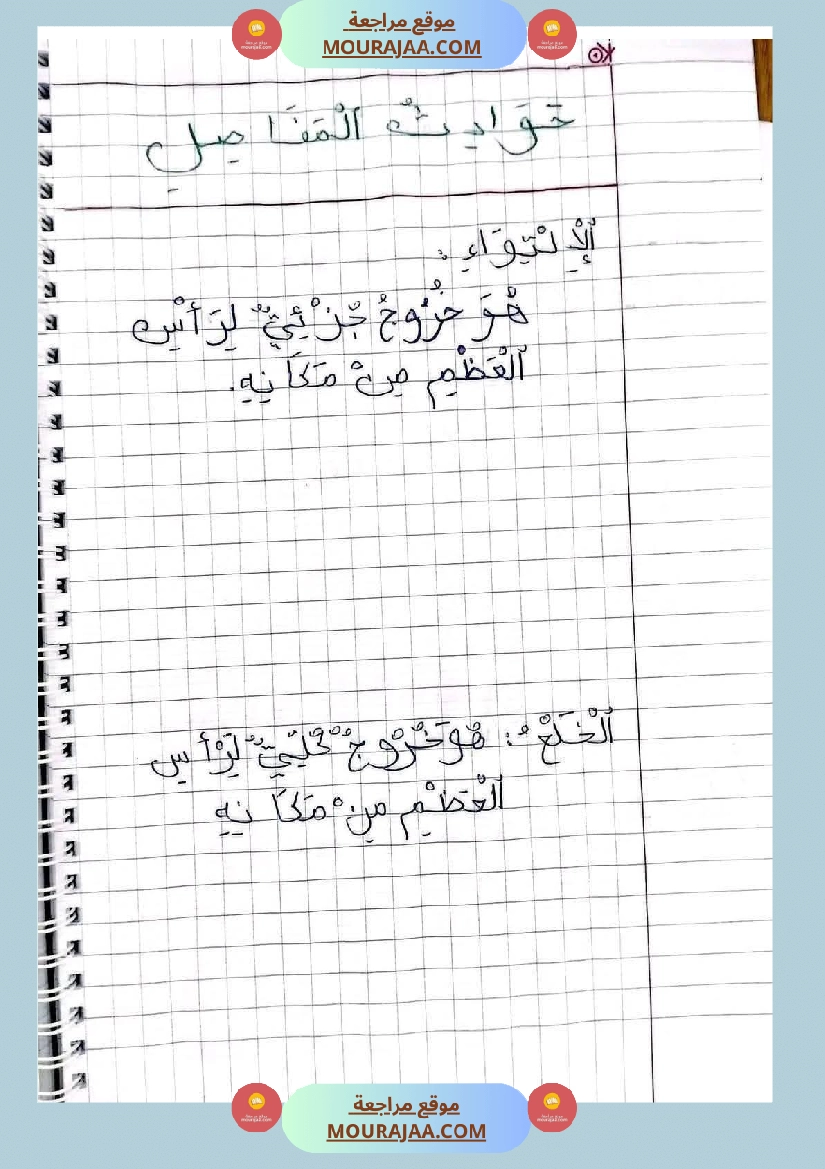 موقع مراجعة
MOURAJAA.COM
حَوَادِثُ ٱلْمَفَاصِلِ
ٱلْإِلْتِوَاءِ :
هُوَ خُرُوجٌ جُزْئِيٌّ لِرَأْسِ
ٱلْعَظْمِ مِنْ مَكَانِهِ.
ٱلْخَلْعُ : هُوَ خُرُوجٌ كُلِّيٌّ لِرَأْسِ
ٱلْعَظْمِ مِنْ مَكَانِهِ
موقع مراجعة
MOURAJAA.COM